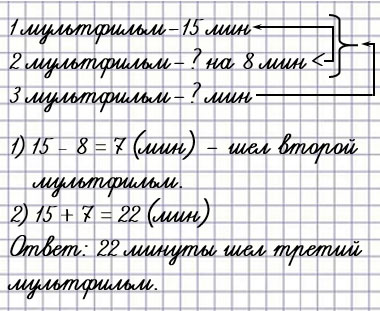 1 мультфильм – 15 мин
2 мультфильм – ? на 8 мин <
3 мультфильм – ? мин
1) 15 – 8 = 7 (мин) – шел второй
мультфильм.
2) 15 + 7 = 22 (мин)
Ответ: 22 минуты шел третий
мультфильм.